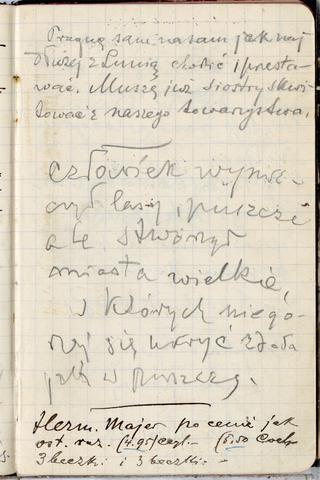 Pragnę sam na sam jak naj
dłużej z Lunią chodzić i przesta-
wać. Muszę już siostry skwi
tować z naszego towarzystwa.
człowiek wynisz-
czył lasy, puszcze
ale stworzył
miasta wielkie,
w których niego-
rzej się ukryć zdoła
jak w puszczy.
Herm. Majer po cenie jak
ost. raz. (4.95) czyt.- (5.50 Coch
3 beczki i 3 beczki.-